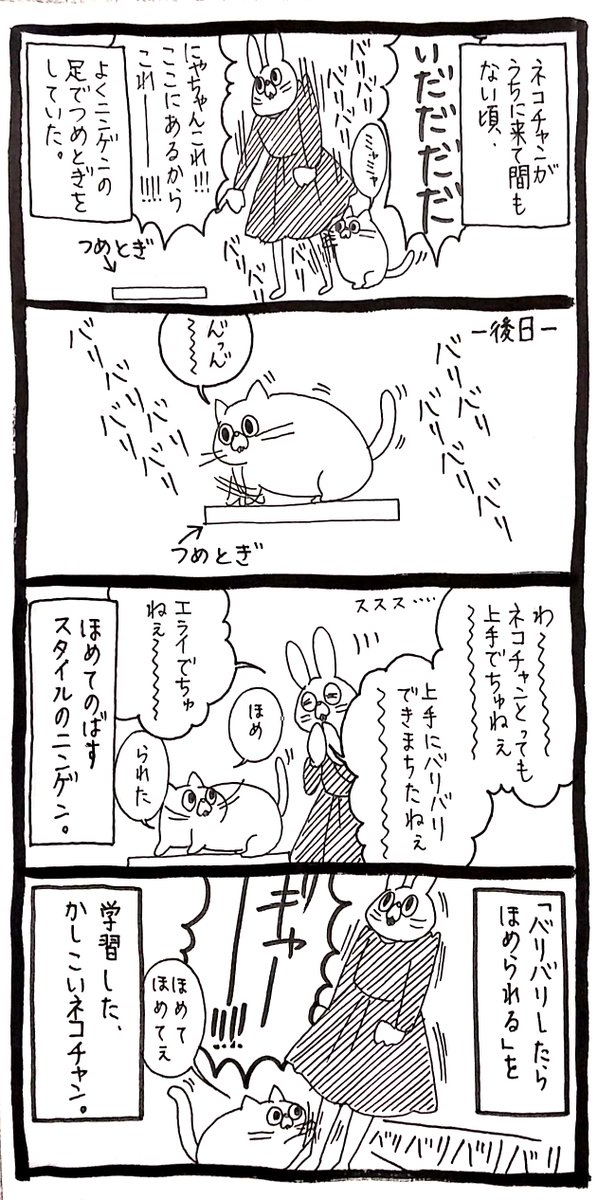 ネコチャンが
うちに来て間も
ない頃、
いだだだだ
バリバリ
バリバリ
ミャミャ
にゃちゃんこれ!!!
ここにあるから
これーーー!!!!
よくニンゲンの
足でつめとぎを
していた。
バリバリ
バリバリ
つめとぎ
ー後日ー
バリバリ
バリバリバリ
んっん〜〜〜
バリバリバリ
バリバリバリ
つめとぎ
わ〜〜〜〜
ネコチャンとっても
上手でちゅねぇ
〜〜〜〜
上手にバリバリ
できまちたねぇ
〜〜〜〜
ススス‥‥
エライでちゅ
ねぇ〜〜〜〜
ほめ
られた
ほめてのばす
スタイルのニンゲン。
「バリバリしたら
ほめられる」を
ギャーーー!!!!
ほめて
ほめてぇ
バリバリバリバリ
学習した、
かしこいネコチャン。